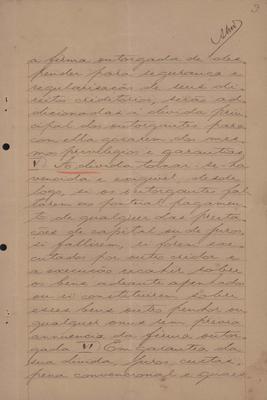 3
a firma outorgada de des
pender para segurança e
regularisação de seus di
reitos creditorios, serão ad
dicionadas á divida prin
cipal dos outorgantes para
com ella gosarem dos mes
mos privilegios e garantias
V) A divida tornar-se-ha
vencida e exigivel desde
logo, si os outorgantes fal
tarem ao pontual pagamen
to de qualquer das presta
ções de capital ou de juros,
si fallirem, si forem exe
cutados por outro credor e
a execução recahir sobre
os bens adeante apenhados
ou si constituirem sobre
esses bens outro penhor ou
qualquer onus sem previa
annuencia da firma outor
gada VI) Em garantia da
sua divida, juros, custas,
pena convencional e quaes